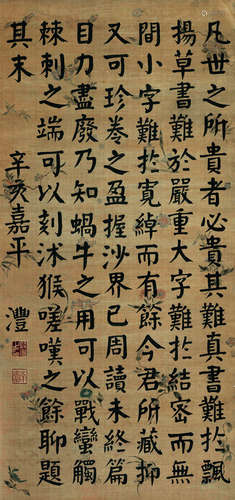 凡世之所貴者必貴其難真書難於飄
揚草書難於嚴重大字難於結密而無
間小字難於寬綽而有餘今君所藏抑
又可珍卷之盈握沙界已周讀未終篇
目力盡廢乃知蝸牛之用可以戰蠻觸
棘刺之端可以刻沐猴嗟嘆之餘聊題
其末
辛亥嘉平
灃